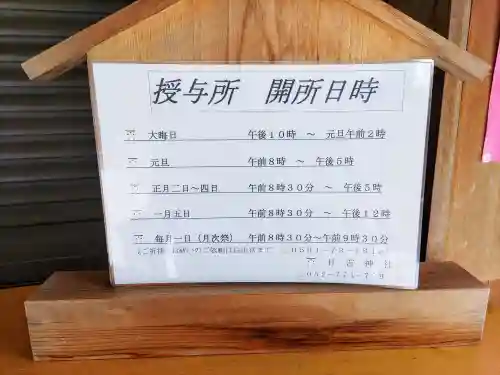 授与所 開所日時
大晦日 午後10時 ~ 元旦午前2時
元旦 午前8時 ~ 午後5時
正月二日~四日 午前8時30分 ~ 午後5時
一月五日 午前8時30分 ~ 午後12時
毎月一日(月次祭) 午前8時30分~午前9時30分